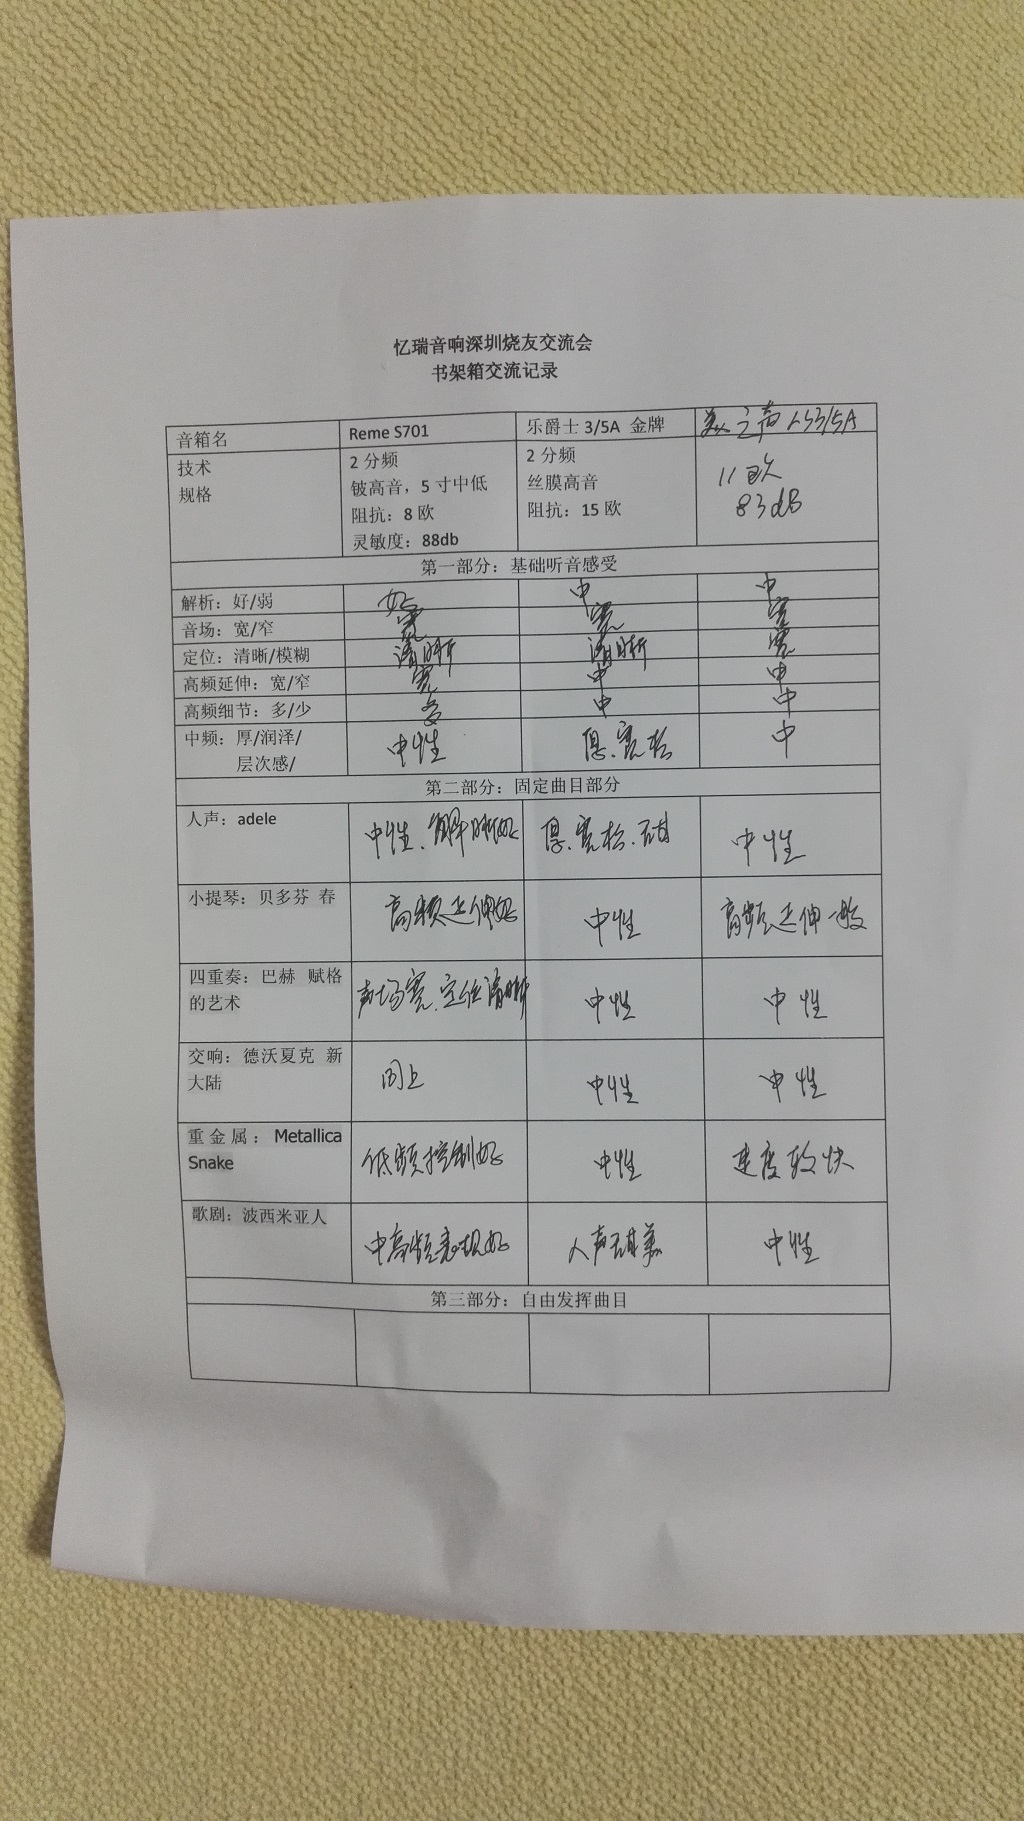 忆瑞音响深圳烧友交流会
书架箱交流记录
音箱名 Reme S701 乐爵士 3/5A 金牌 美之声 LS3/5A
技术 2 分频 2 分频
规格 铍高音，5 寸中低 丝膜高音 11欧
阻抗：8 欧 阻抗：15 欧 83dB
灵敏度：88db
第一部分：基础听音感受
解析：好/弱 好 中 中
音场：宽/窄 宽 宽 宽
定位：清晰/模糊 清晰 清晰 宽
高频延伸：宽/窄 宽 中 中
高频细节：多/少 多 中 中
中频：厚/润泽/ 中性 厚、宽松 中
层次感/
第二部分：固定曲目部分
人声：adele 中性、解晰好 厚、宽松、甜 中性
小提琴：贝多芬 春 高频延伸好 中性 高频延伸一般
四重奏：巴赫 赋格 声场宽、定位清晰 中性 中性
的艺术
交响：德沃夏克 新 同上 中性 中性
大陆
重金属：Metallica 低频控制好 中性 速度较快
Snake
歌剧：波西米亚人 中高频表现好 人声甜美 中性
第三部分：自由发挥曲目